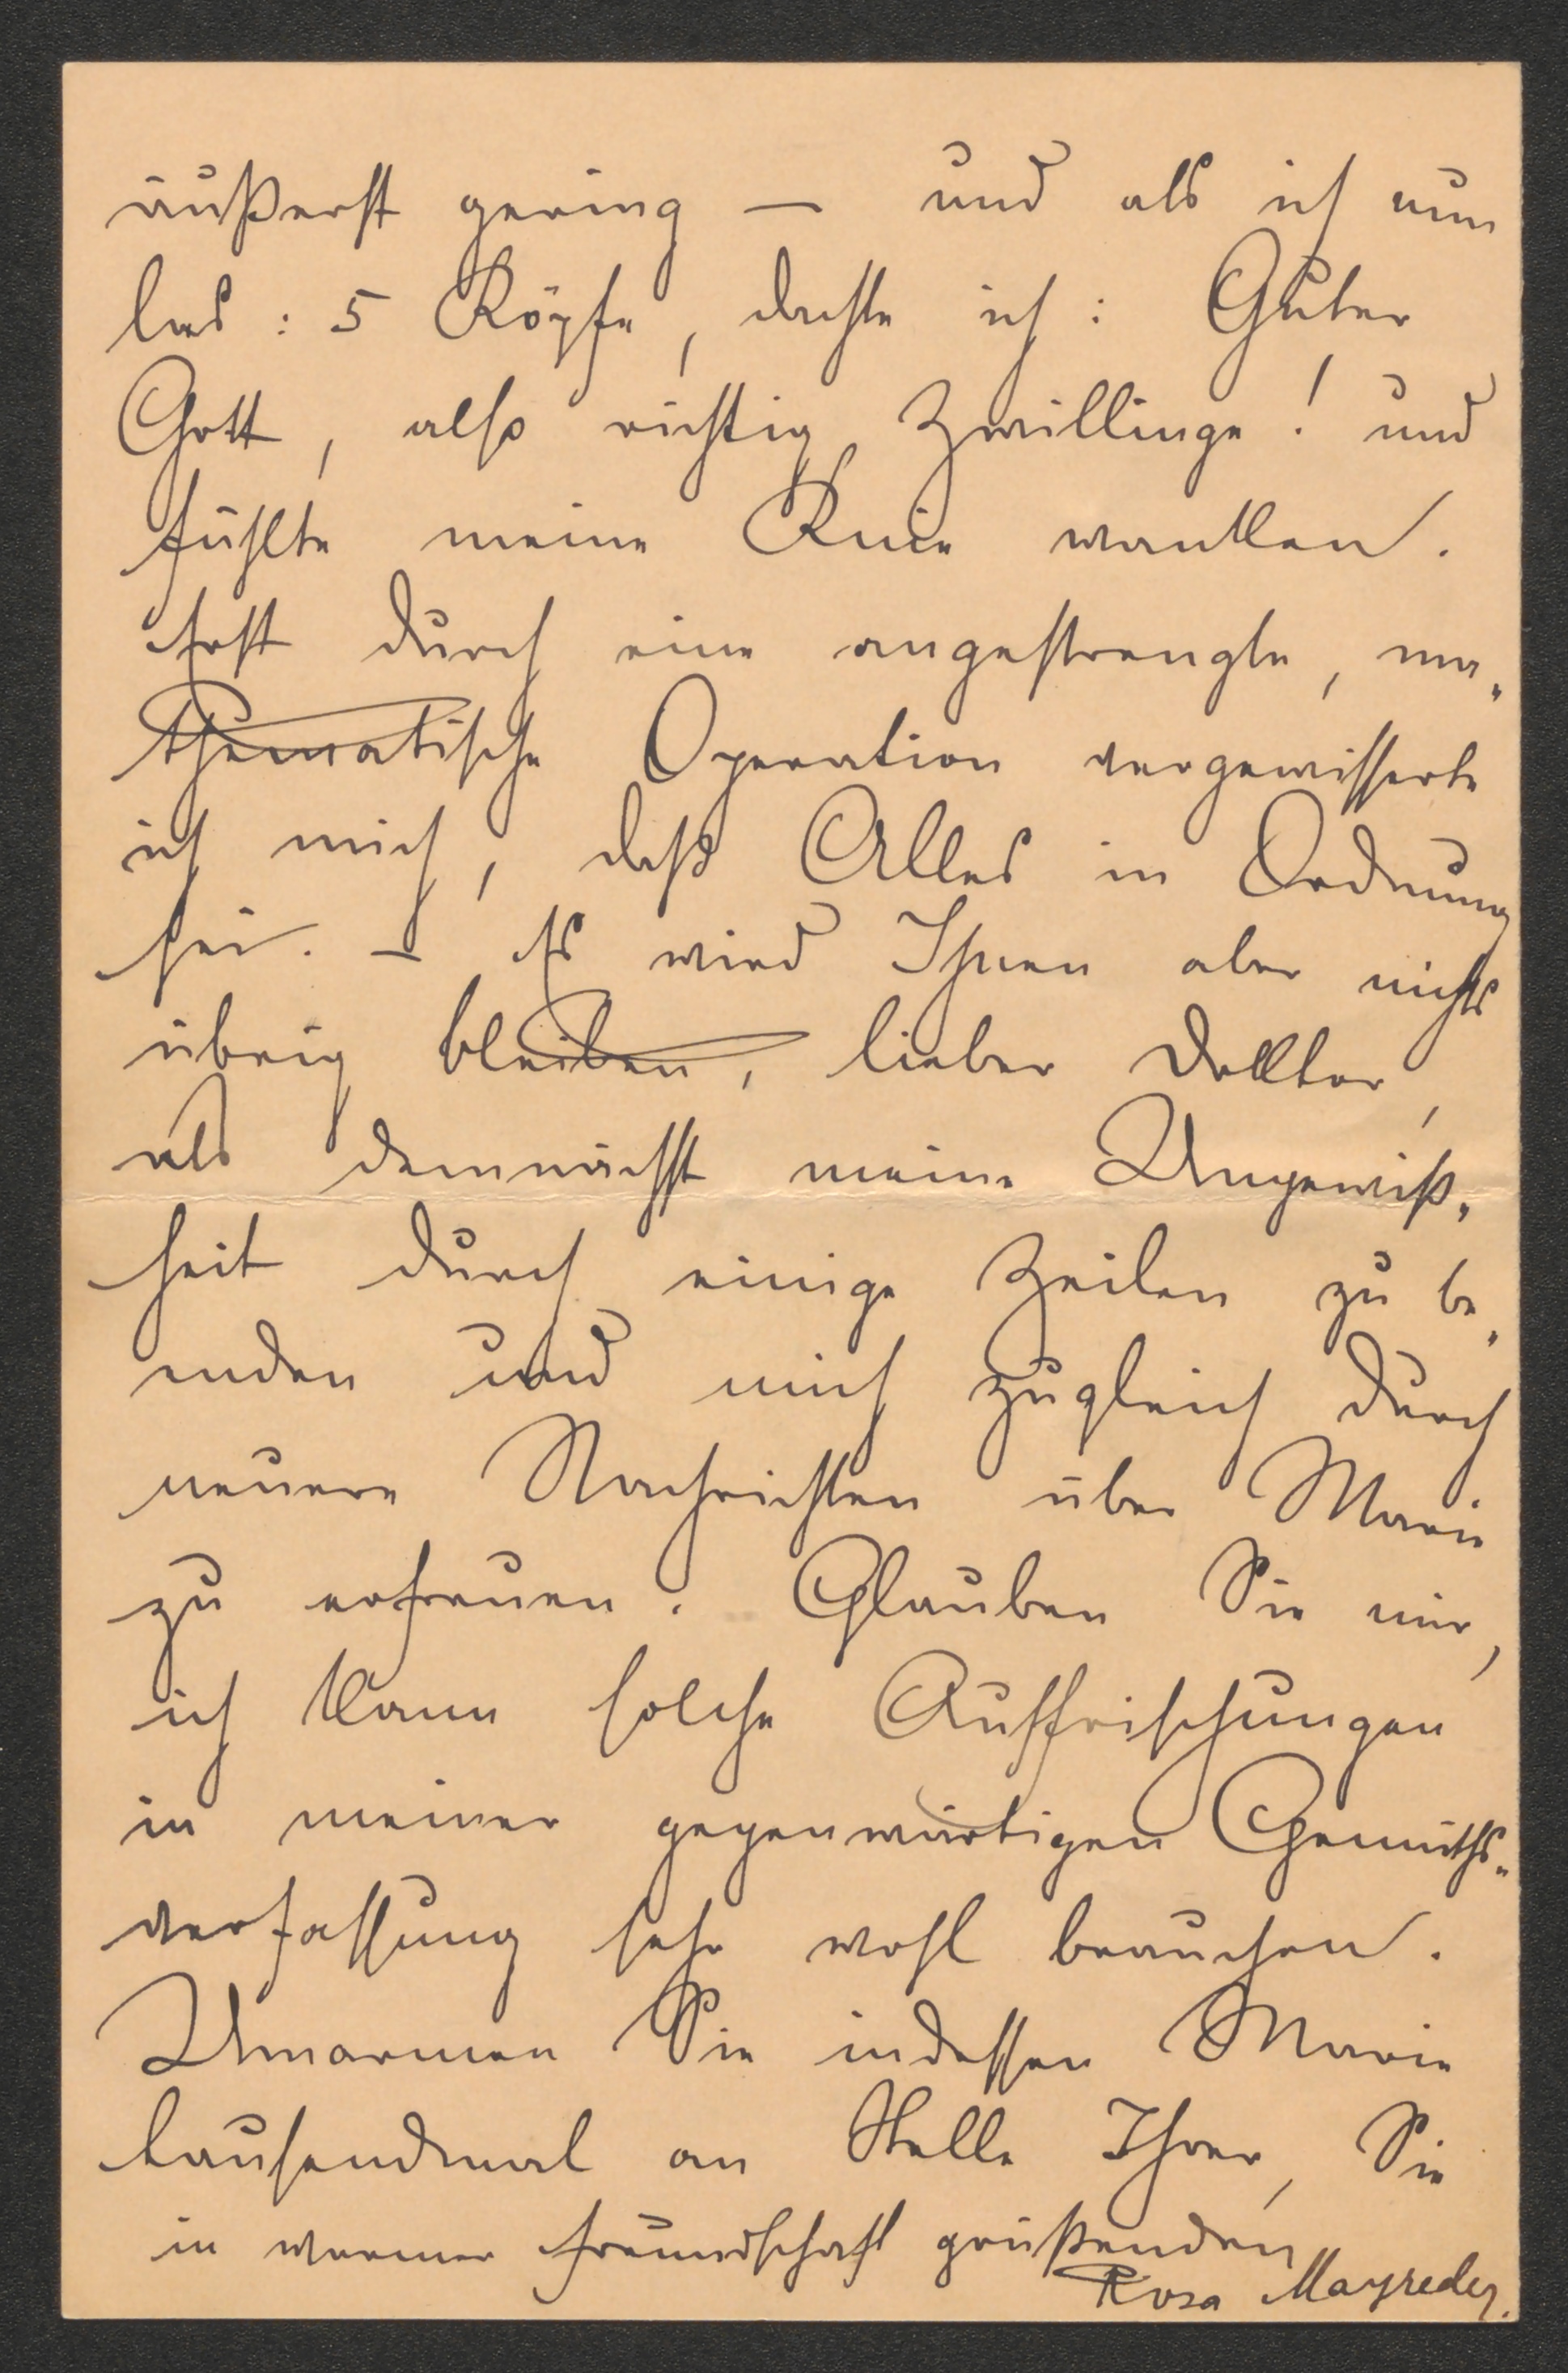 äußerst gering — und als ich nun
las : 5 Köpfe, dachte ich : Guter
Gott, also richtig Zwillinge! und
fühlte meine Knie wanken.
Erst durch eine angestrengte, ma„
thematische Operation vergewisserte
ich mich, daß Alles in Ordnung
sei. — Es wird Ihnen aber nichts
übrig bleiben, lieber Doktor,
als demnächst meine Ungewiß„
heit durch einige Zeilen zu be„
enden und mich zugleich durch
neuere Nachrichten über Marie
zu erfreuen. Glauben Sie mir,
ich kann solche Auffrischungen
in meiner gegenwärtigen Gemüths„
verfassung sehr wohl brauchen.
Umarmen Sie indessen Marie
tausendmal an Stelle Ihrer, Sie
in warmer Freundschaft grüßenden
Rosa Mayreder.